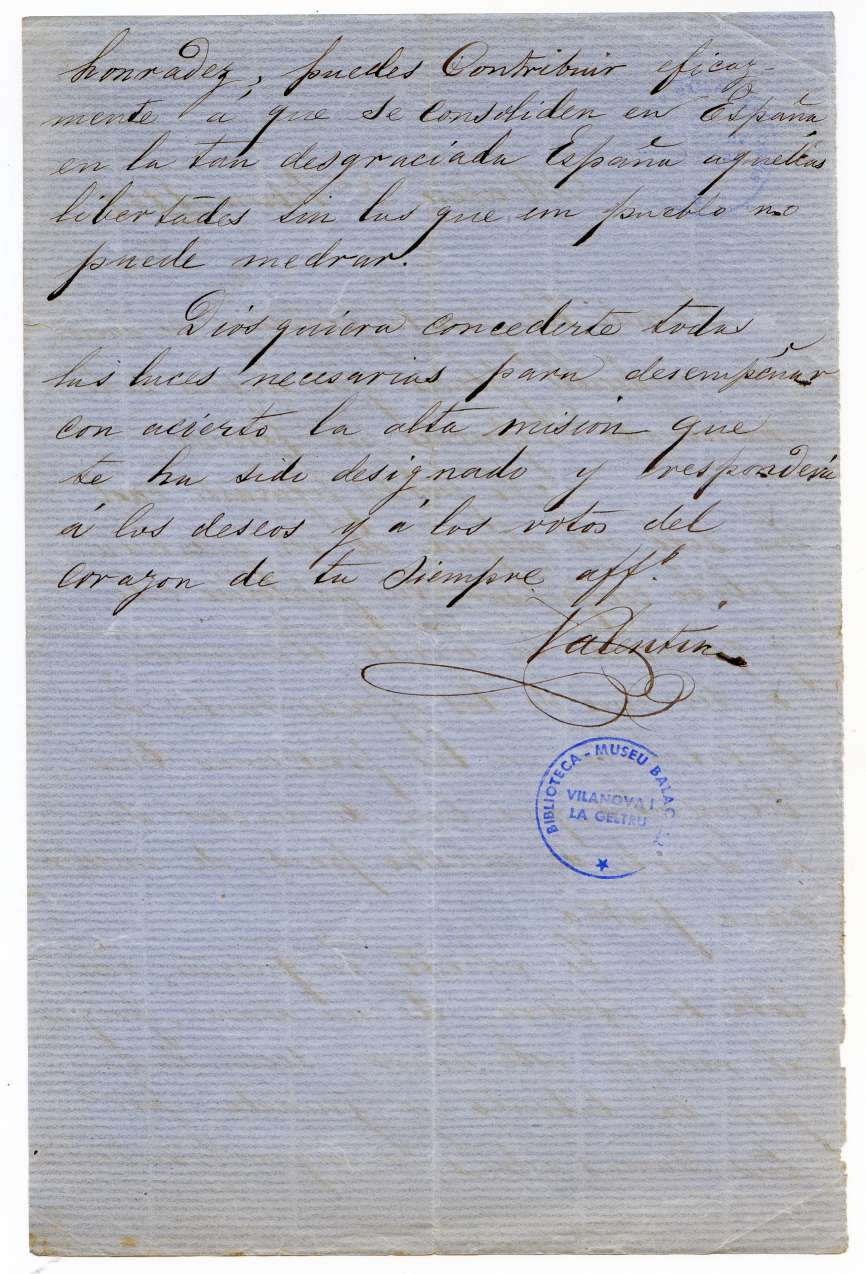 honradez, puedes Contribuir eficaz-
mente á que se consoliden en España
en la tan desgraciada España aquellas
libertades sin las que un pueblo no
puede medrar.
Dios quiera concederte todas
las luces necesarias para desempeñar
con acierto la alta misión que
te ha sido designado y responderá
á los deseos y á los votos del
corazon de tu siempre aff.º
Valentin
BIBLIOTECA - MUSEU BALAG
VILANOVA I
LA GELTRU